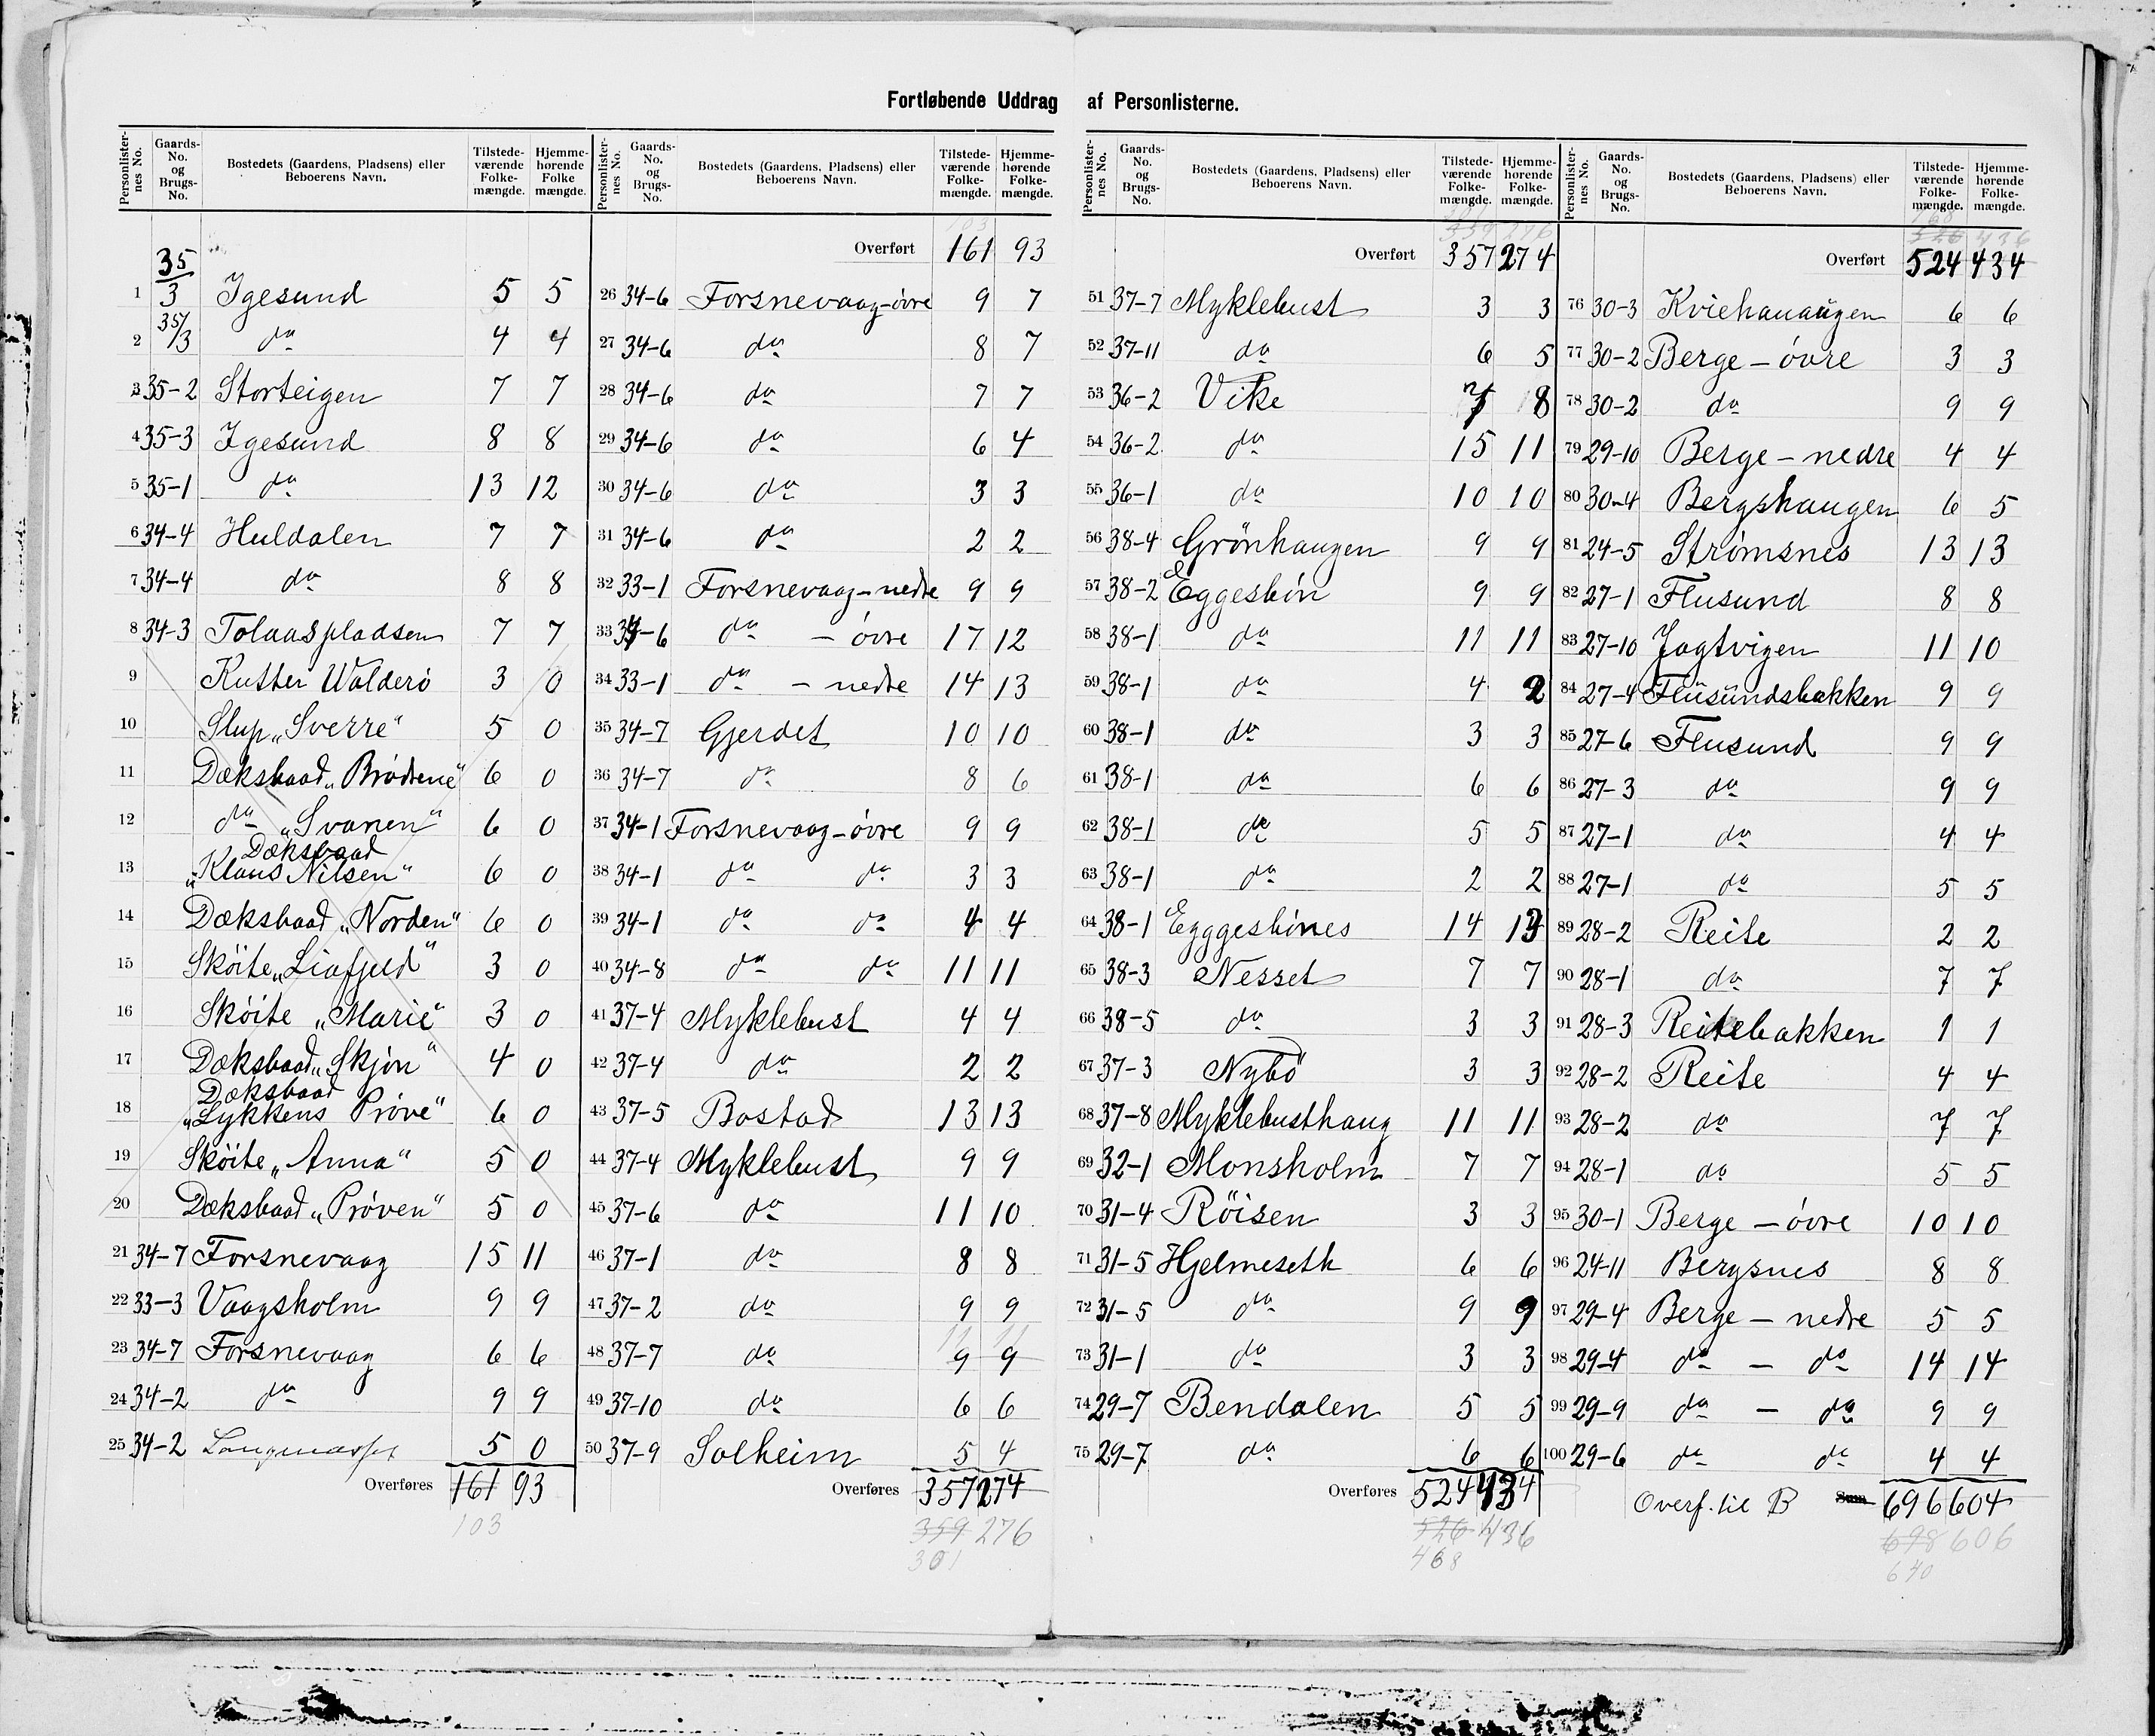 Fortløbende Uddrag af Personlisterne.
Personlisternes No. Gaards-No. og Brugs-No. Bostedets (Gaardens, Pladsens) eller Beboerens Navn. Tilstedeværende Folkemængde. Hjemmehørende Folke mængde.
1 35/3 Igesund 5 5
2 35/3 do 4 4
3 35-2 Storteigen 7 7
4 35-3 Igesund 8 8
5 35-1 do 13 12
6 34-4 Huldalen 7 7
7 34-4 do 8 8
8 34-3 Tolaaspladsen 7 7
9 Kutter Walderö 3 0
10 Slup "Sverre" 5 0
11 Dæksbaad "Brödrene" 6 0
12 do "Svanen" 6 0
13 Dæksbaad "Klaus Nilsen" 6 0
14 Dæksbaad "Norden" 6 0
15 Sköite "Liafjeld" 3 0
16 Sköite "Marie" 3 0
17 Dæksbaad "Skjön" 4 0
18 Dæksbaad "Lykkens Pröve" 6 0
19 Sköite "Anna" 5 0
20 Dæksbaad "Pröven" 5 0
21 34-7 Forsnevaag 15 11
22 33-3 Vaagsholm 9 9
23 34-7 Forsnevaag 6 6
24 34-2 do 9 9
25 34-2 5 0
Overføres 161 93
103
Personlisternes No. Gaards-No. og Brugs-No. Bostedets (Gaardens, Pladsens) eller Beboerens Navn. Tilstedeværende Folkemængde. Hjemmehørende Folkemængde.
103
Overført 161 93
26 34-6 Forsnevaag-övre 9 7
27 34-6 do 8 7
28 34-6 do 7 7
29 34-6 do 6 4
30 34-6 do 3 3
31 34-6 do 2 2
32 33-1 Forsnevaag-nedre 9 9
33 34-6 do - övre 17 12
34 33-1 do - nedre 14 13
35 34-7 Gjerdet 10 10
36 34-7 do 8 6
37 34-1 Forsnevaag-övre 9 9
38 34-1 do do 3 3
39 34-1 do do 4 4
40 34-8 do do 11 11
41 37-4 Myklebust 4 4
42 37-4 do 2 2
43 37-5 Bostad 13 13
44 37-4 Myklebust 9 9
45 37-6 do 11 10
46 37-1 do 8 8
47 37-2 do 9 9
11 11
48 37-7 do 9 9
49 37-10 do 6 6
50 37-9 Solheim 5 4
Overføres 357 274
359 276
301
Personlisternes No. Gaards-No. og Brugs-No. Bostedets (Gaardens, Pladsens) eller Beboerens Navn. Tilstedeværende Folkemængde. Hjemmehørende Folkemængde.
301
359 276
Overført 357 274
51 37-7 Myklebust 3 3
52 37-11 do 6 5
53 36-2 Vike 7 8
54 36-2 do 15 11
55 36-1 do 10 10
56 38-4 Grönhaugen 9 9
57 38-2 Eggesbön 9 9
58 38-1 do 11 11
59 38-1 do 4 2
60 38-1 do 3 3
61 38-1 do 6 6
62 38-1 do 5 5
63 38-1 do 2 2
64 38-1 Egggesbönes 14 13
65 38-3 Nesset 7 7
66 38-5 do 3 3
67 37-3 Nybö 3 3
68 37-8 Myklebusthaug 11 11
69 32-1 Monsholm 7 7
70 31-4 Röisen 3 3
71 31-5 Hjelmeseth 6 6
72 31-5 do 9 9
73 31-1 do 3 3
74 29-7 Bendalen 5 5
75 29-7 do 6 6
Overføres 524 434
526 436
468
Personlisternes No. Gaards-No. og Brugs-No. Bostedets (Gaardens, Pladsens) eller Beboerens Navn. Tilstedeværende Folkemængde. Hjemmehørende Folkemængde.
468
526 436
Overført 524 434
76 30-3 Kviehauaügen 6 6
77 30-2 Berge - övre 3 3
78 30-2 do 9 9
79 29-10 Berge - nedre 4 4
80 30-4 Bergshaugen 6 5
81 24-5 Strömsnes 13 13
82 27-1 Flusund 8 8
83 27-10 Jagtvigen 11 10
84 27-4 Flüsundsbakken 9 9
85 27-6 Flusund 9 9
86 27-3 do 9 9
87 27-1 do 4 4
88 27-1 do 5 5
89 28-2 Reite 2 2
90 28-1 do 7 7
91 28-3 Reitebakken 1 1
92 28-2 Reite 4 4
93 28-2 do 7 7
94 28-1 do 5 5
95 30-1 Berge - övre 10 10
96 24-11 Bergsnes 8 8
97 29-4 Berge - nedre 5 5
98 29-4 do - do 14 14
99 29-9 do - do 9 9
100 29-6 do do 4 4
Overf. til B Sum 696 604
698 606
640